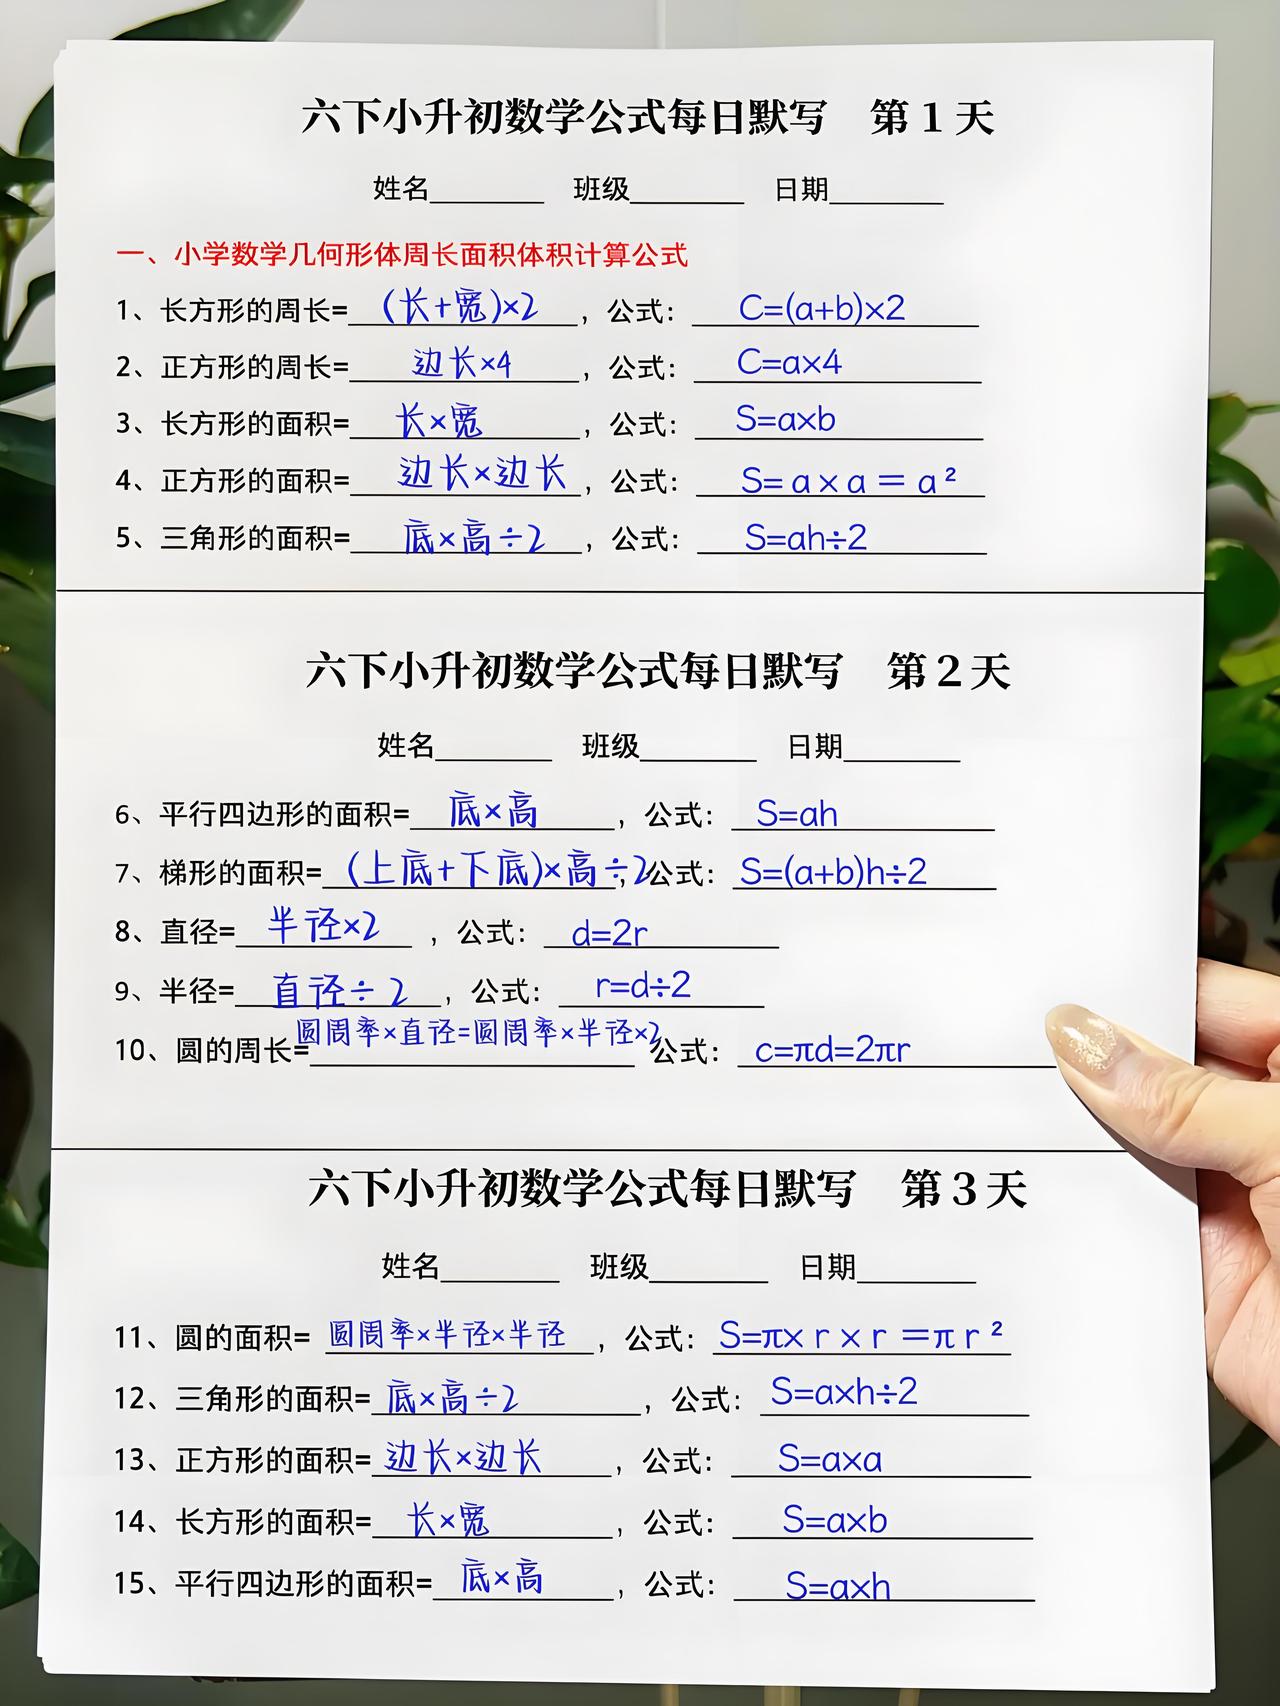 六下小升初数学公式每日默写 第1天
姓名________ 班级________ 日期________
一、小学数学几何形体周长面积体积计算公式
1、长方形的周长=(长+宽)×2，公式：C=(a+b)×2
2、正方形的周长=边长×4，公式：C=a×4
3、长方形的面积=长×宽，公式：S=a×b
4、正方形的面积=边长×边长，公式：S=a×a=a²
5、三角形的面积=底×高÷2，公式：S=ah÷2
六下小升初数学公式每日默写 第2天
姓名________ 班级________ 日期________
6、平行四边形的面积=底×高，公式：S=ah
7、梯形的面积=(上底+下底)×高÷2，公式：S=(a+b)h÷2
8、直径=半径×2，公式：d=2r
9、半径=直径÷2，公式：r=d÷2
10、圆的周长=圆周率×直径=圆周率×半径×2 公式：c=πd=2πr
六下小升初数学公式每日默写 第3天
姓名________ 班级________ 日期________
11、圆的面积=圆周率×半径×半径，公式：S=π×r×r=πr²
12、三角形的面积=底×高÷2，公式：S=a×h÷2
13、正方形的面积=边长×边长，公式：S=a×a
14、长方形的面积=长×宽，公式：S=a×b
15、平行四边形的面积=底×高，公式：S=a×h